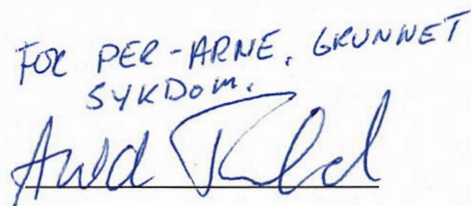 FOR PER-ARNE, GRUNNET
SYKDOM.